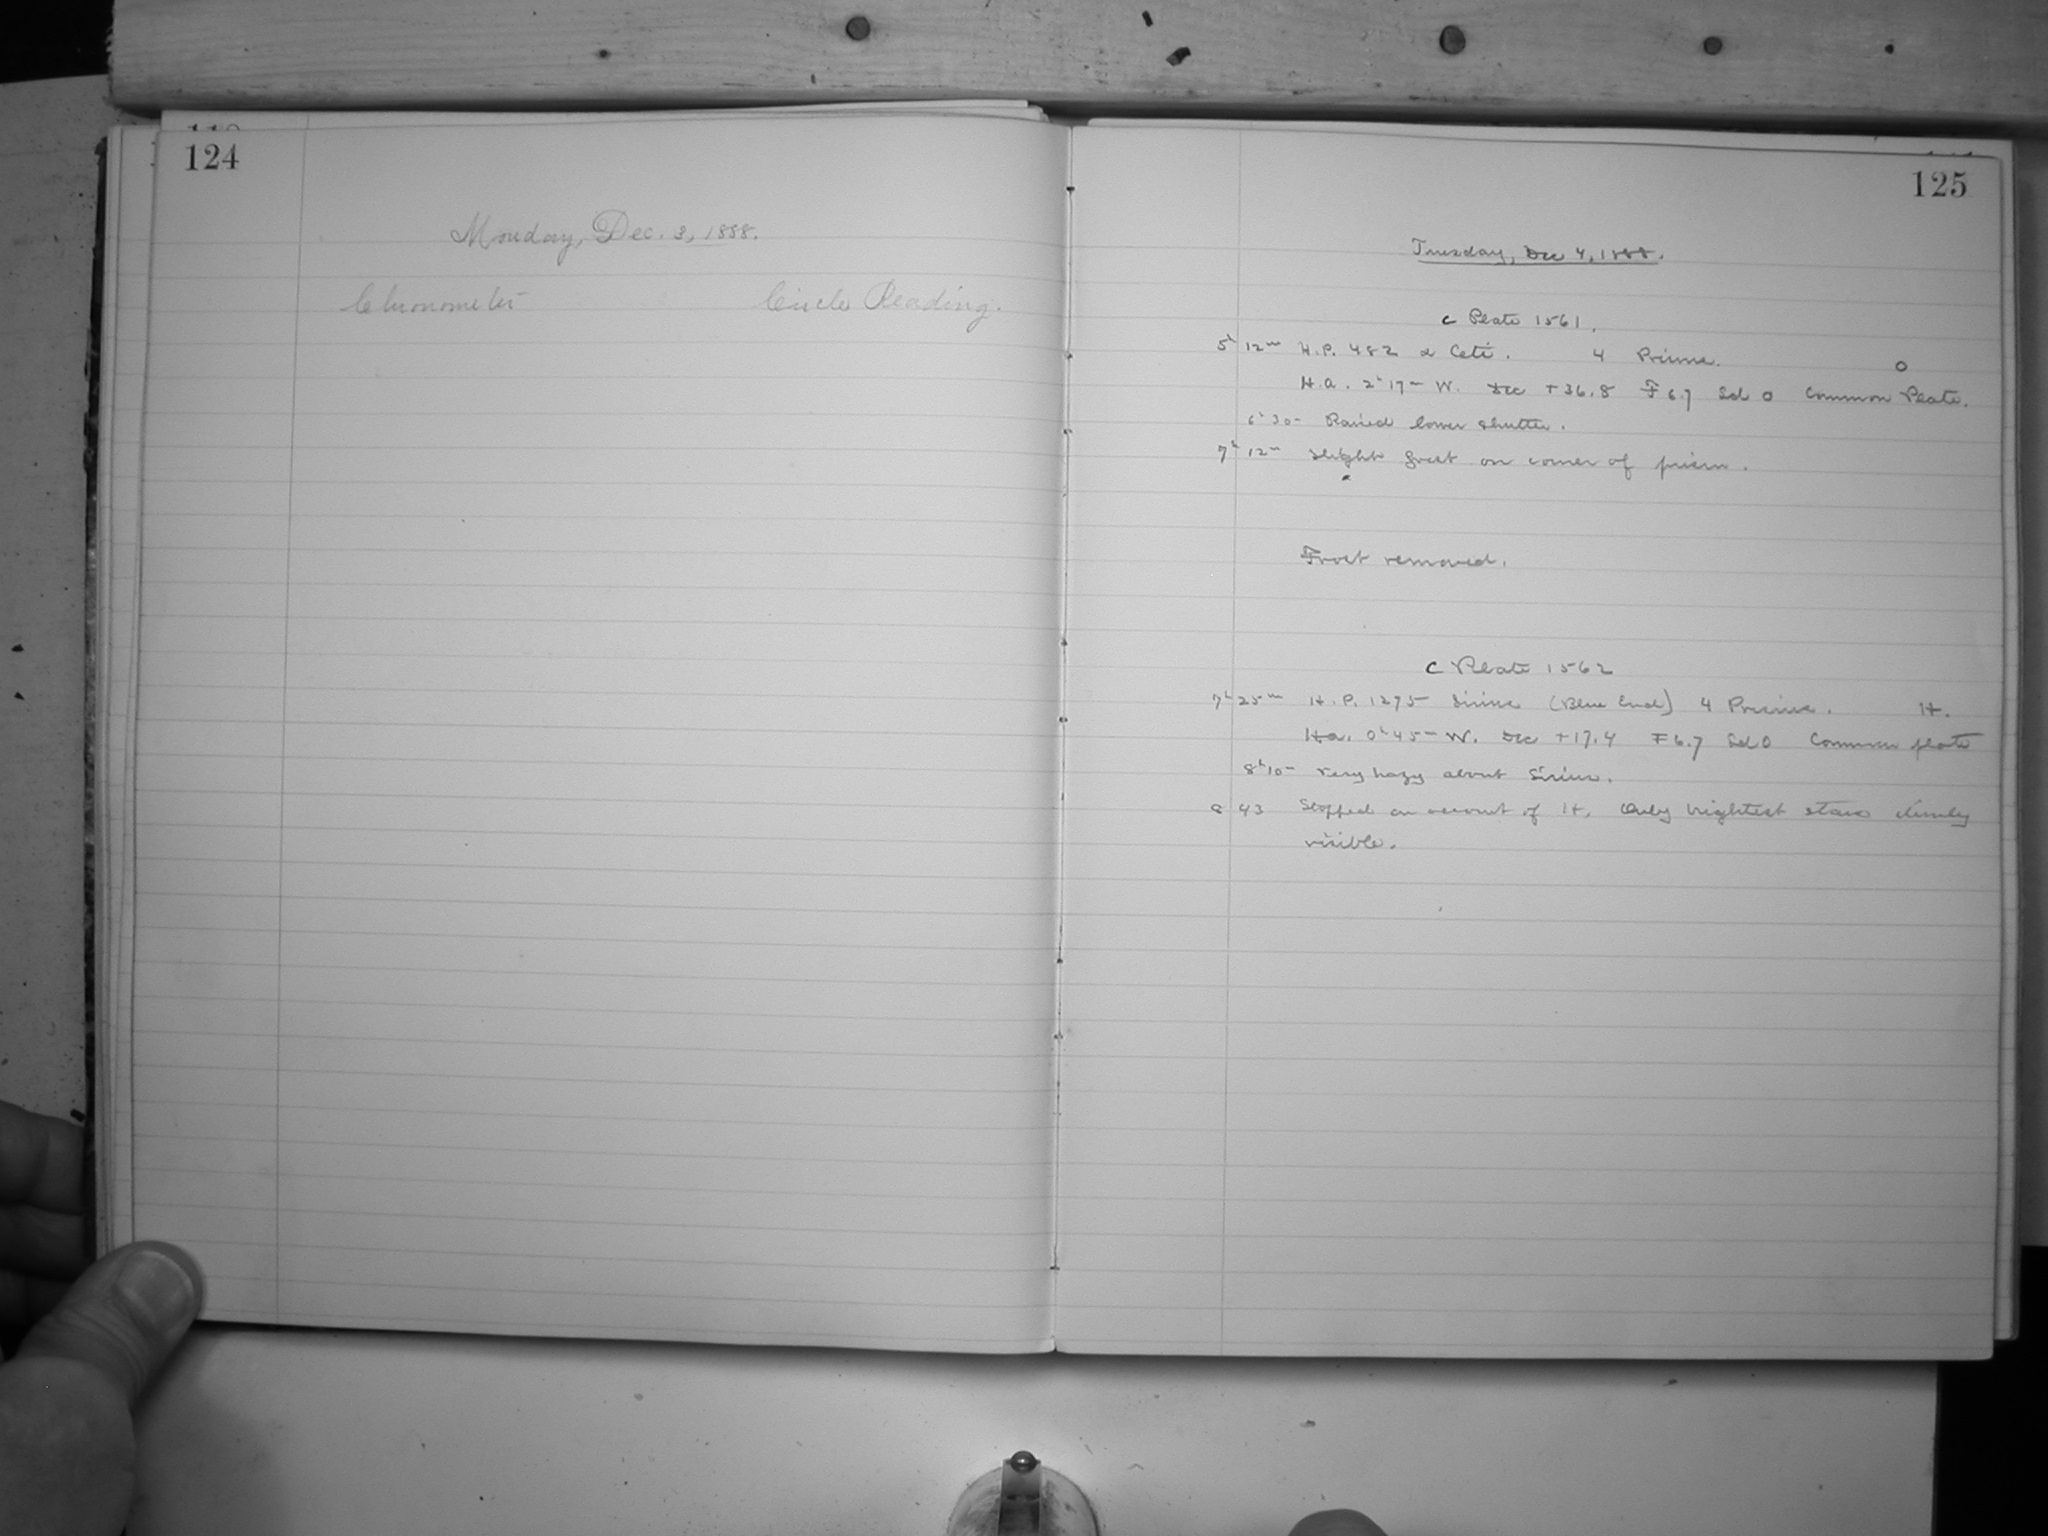 124
Monday, Dec. 3, 1888.
Chronometer Circle Reading.
125
Tuesday, Dec 4, 1888.
c Plate 1561.
5h 12m H.P. 482 α Ceti. 4 Prisms. O
H.a. 2h 17m W. Dec +36.8 F 6.7 Sd 0 Common Plate.
6h 30m Raised lower shutter.
7h 12m Slight frost on corner of prism.
Frost removed.
C Plate 1562
7h 25m H.P. 1275 Sirius (Blue End) 4 Prisms. H.
Ha. 0h 45m W. Dec +17.4 F 6.7 Sd 0 Common plate
8h 10m Very hazy about Sirius.
8 43 Stopped on account of H. Only brightest stars dimly
visible.